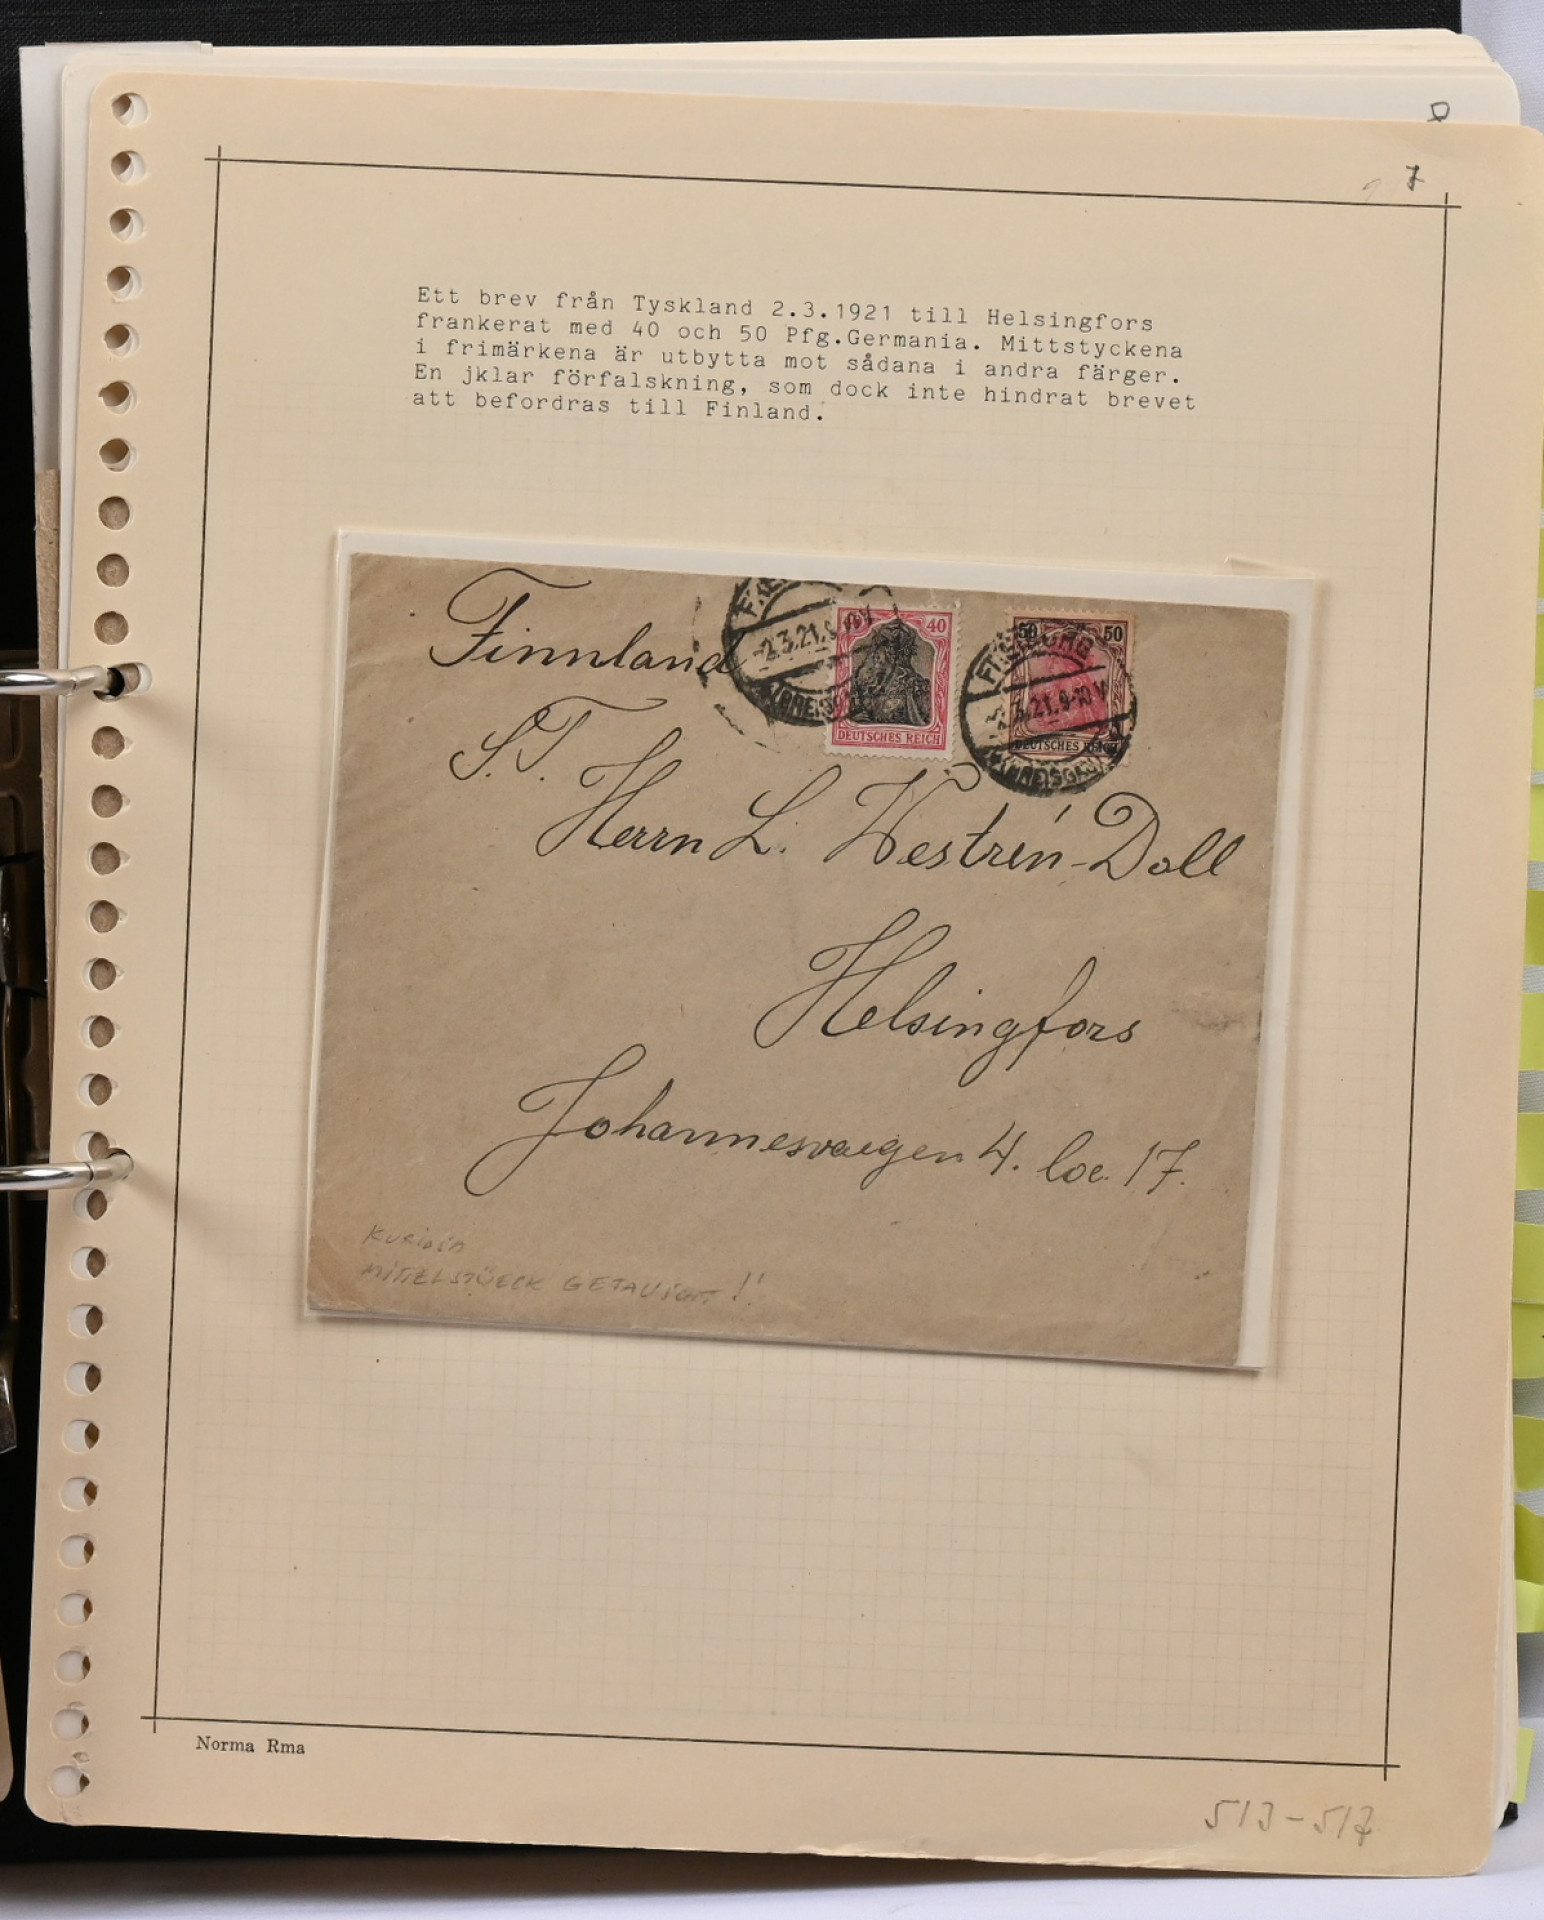 7
Ett brev från Tyskland 2.3.1921 till Helsingfors
frankerat med 40 och 50 Pfg.Germania. Mittstyckena
i frimärkena är utbytta mot sådana i andra färger.
En jklar förfalskning, som dock inte hindrat brevet
att befordras till Finland.
Finnland
S.T.
Herrn L. Westrén-Doll
Helsingfors
Johannesvaegen 4. loc. 17.
40
DEUTSCHES REICH
2.3.21.
50 50
DEUTSCHES REICH
FREIBURG
2.3.21.9-10 V
MITTELSTÜECK GETAUSCHT!!
Norma Rma
513-517